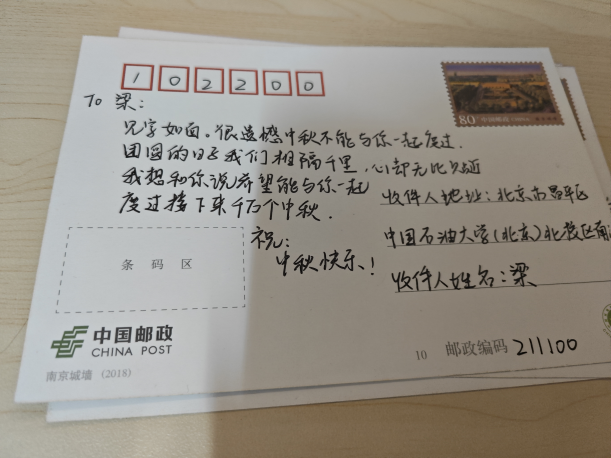 102200
80
中国邮政
To 梁：
见字如面。很遗憾中秋不能与你一起度过.
团圆的日子我们相隔千里，心却无比贴近
我想和你说希望能与你一起
度过接下来千万个中秋.
祝：
中秋快乐！
收件人地址：北京市昌平区
中国石油大学(北京)北校区
收件人姓名：梁
条码区
中国邮政
CHINA POST
南京城墙 (2018)
10 邮政编码 211100